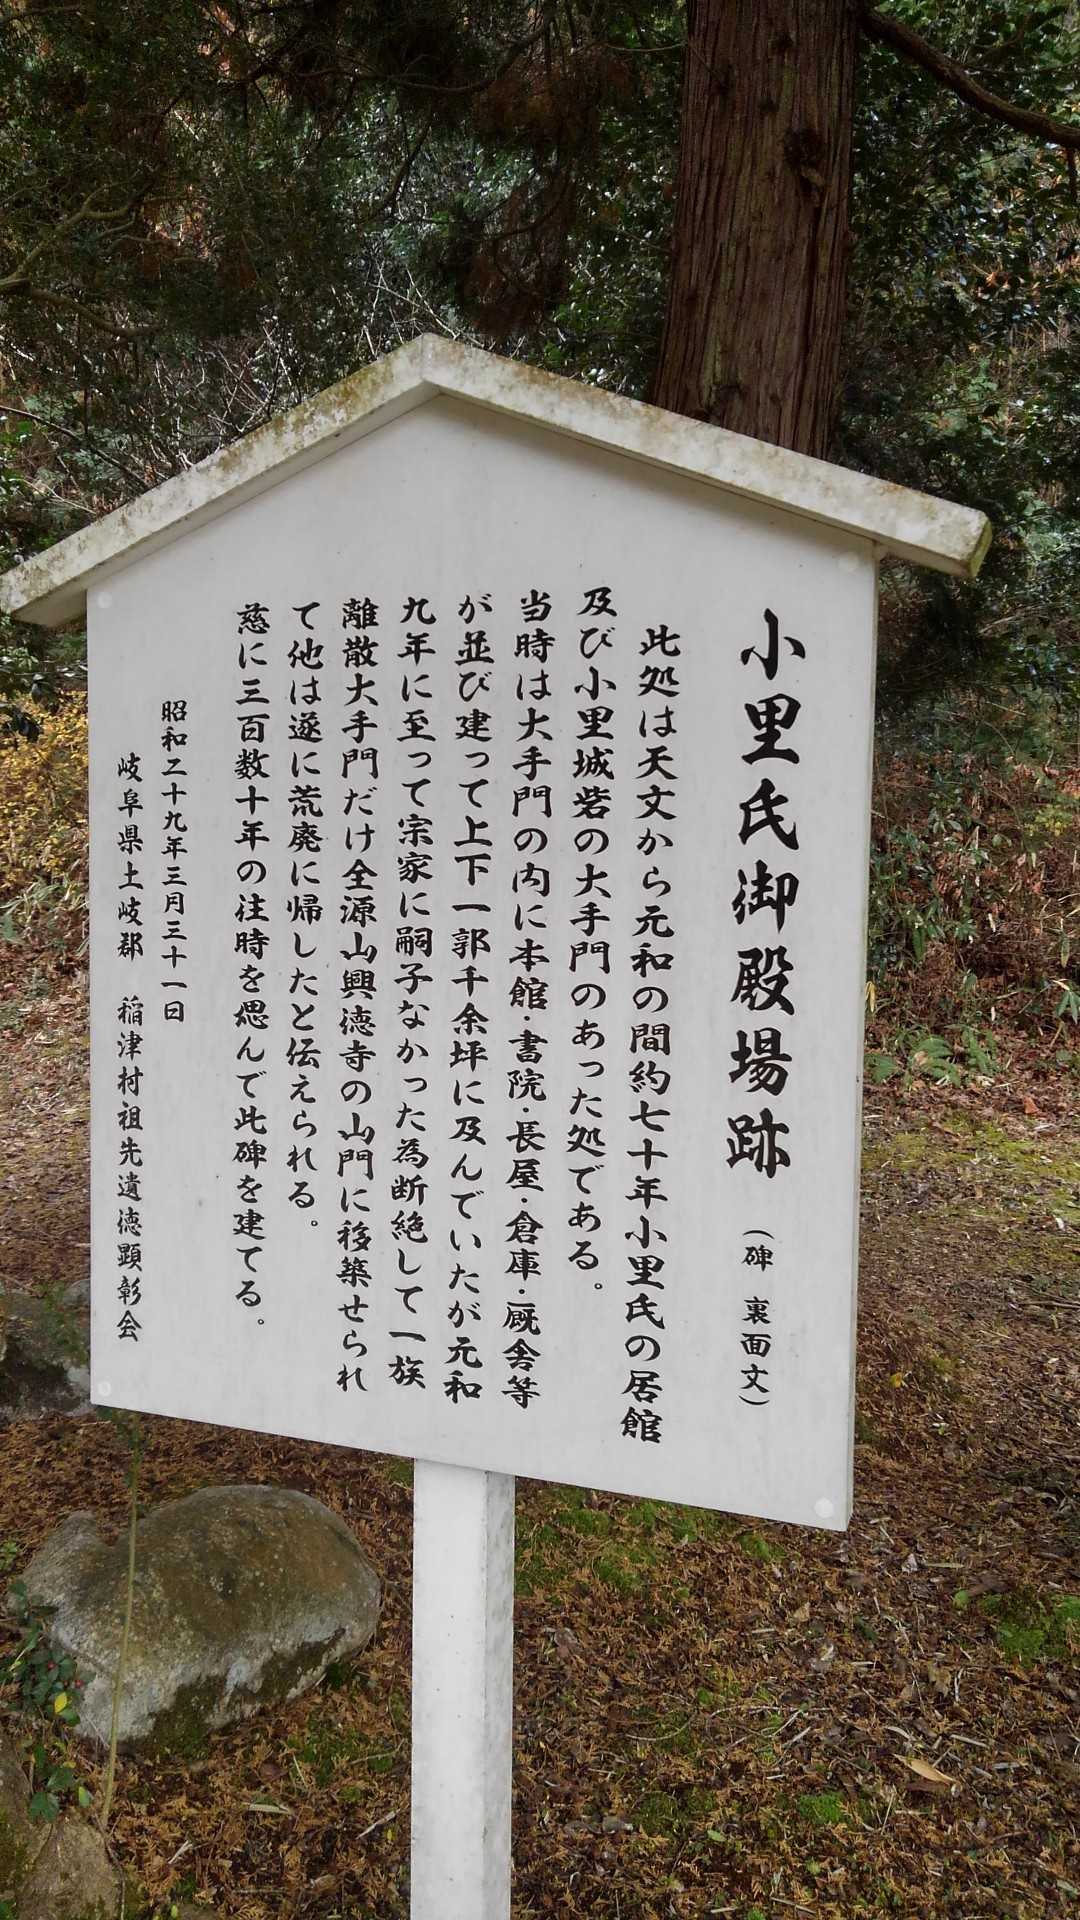 小里氏御殿場跡 （碑 裏面文）
此処は天文から元和の間約七十年小里氏の居館
及び小里城砦の大手門のあった処である。
当時は大手門の内に本館・書院・長屋・倉庫・厩舎等
が並び建って上下一郭千余坪に及んでいたが元和
九年に至って宗家に嗣子なかった為断絶して一族
離散大手門だけ全源山興徳寺の山門に移築せられ
て他は遂に荒廃に帰したと伝えられる。
慈に三百数十年の往時を偲んで此碑を建てる。
昭和二十九年三月三十一日
岐阜県土岐郡 稲津村祖先遺徳顕彰会